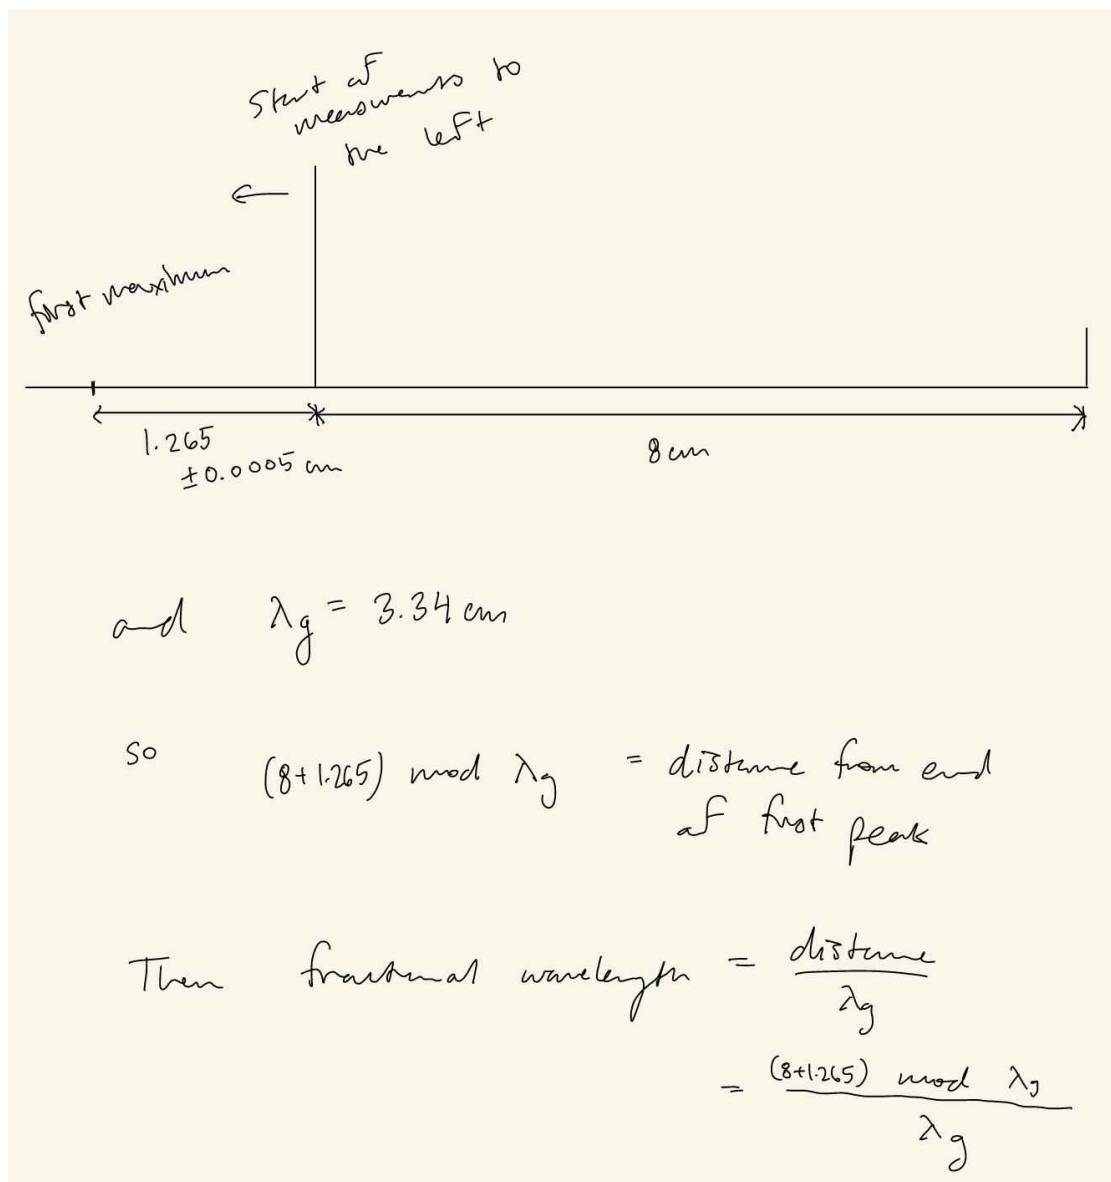 Start of
measurements to
the left
←
first maximum
1.265
±0.0005 cm
8 cm
and λg = 3.34 cm
so (8+1.265) mod λg = distance from end
of first peak
Then fractional wavelength = distance / λg
= (8+1.265) mod λg / λg